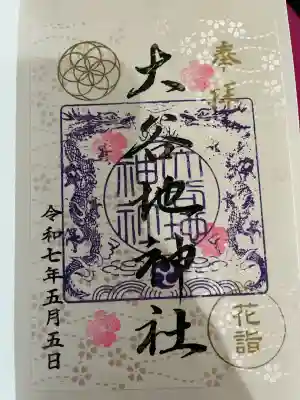 奉拝
大谷地神社
大谷地
神社
花詣
令和七年五月五日